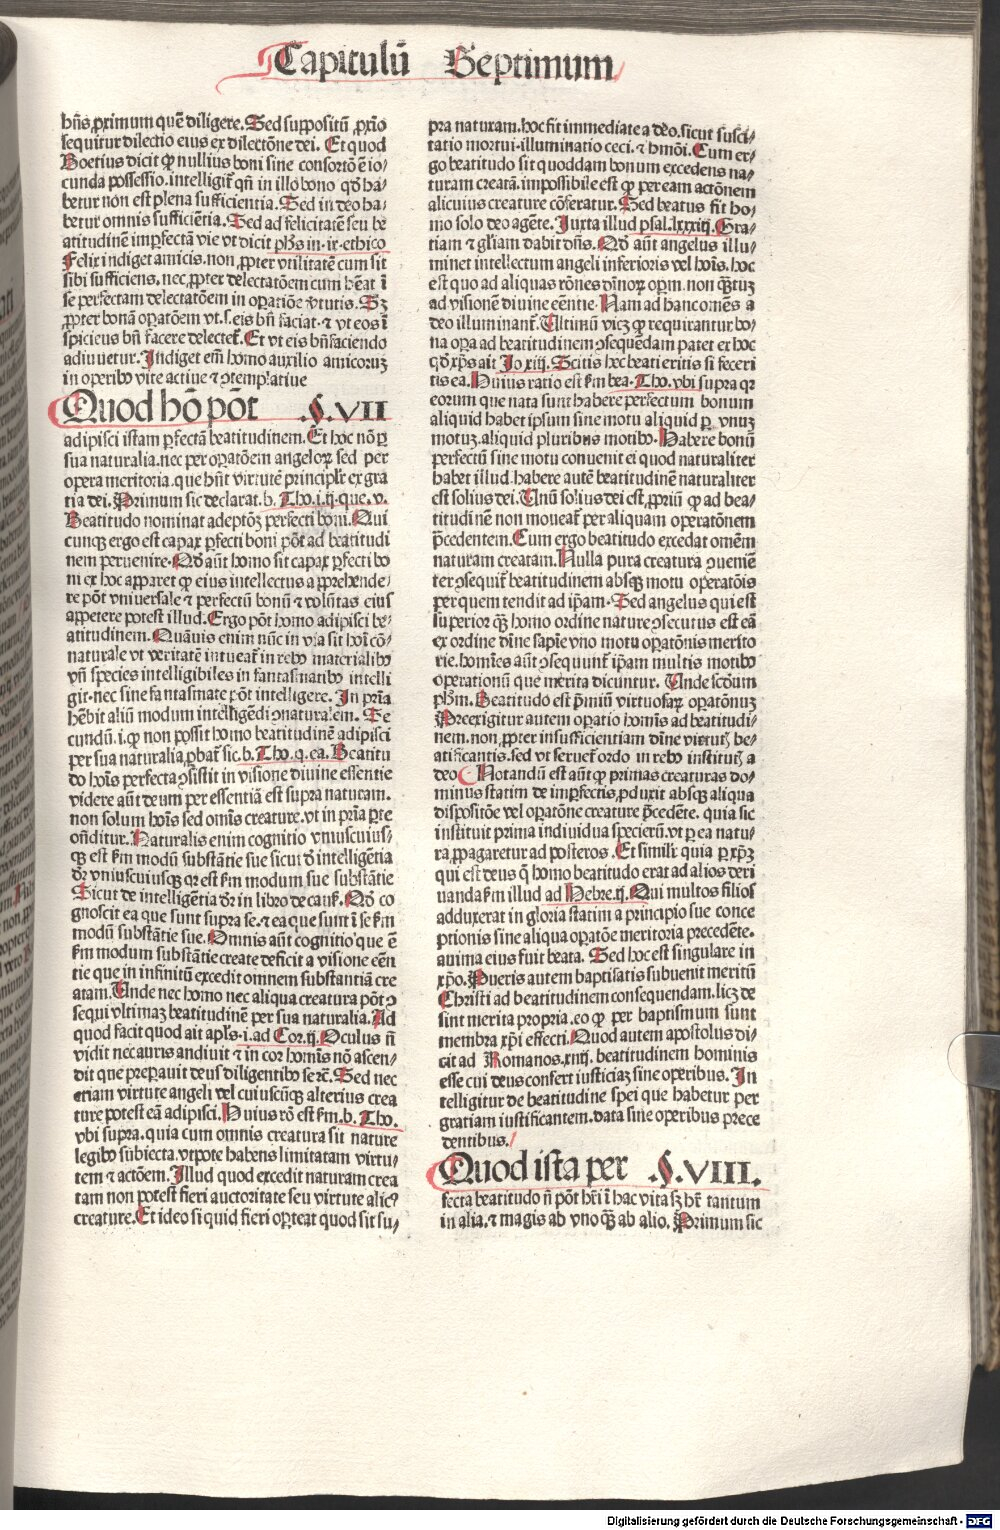 Capitulū Septimum
bn̄s ꝓximum quē diligere. Sed suppositū ꝓxīo
sequitur dilectio eius ex dilectōne dei. Et quod
Boetius dicit ꝙ nullius boni sine consortō ē io-
cunda possessio. intelligit̄ qn̄ in illo bono qd̓ ha-
betur non est plena sufficientia. Sed in deo ha-
betur omnis sufficiētia. Sed ad felicitatē seu be
atitudinē imꝑfectā vie vt dicit pħs in .ix. ethico
Felix indiget amicis. non ꝓpter vtilitatē cum sit
sibi sufficiens, nec ꝓpter delectatōem cum hēat ī
se perfectam delectatōem in oꝑatiōe v̓tutis. Sꝫ
ꝓpter bonā oꝑatōem vt .s. eis bn̄ faciat. ⁊ vt eos ī
spiciens bn̄ facere delectet̄. Et vt eis bn̄faciendo
adiuuetur. Indiget em̄ homo auxilio amicoruꝫ
in operibꝰ vite actiue ⁊ ꝯtemplatiue
Quod hō pōt .§. VII
adipisci istam ꝑfectā beatitudinem. Et hoc nō ꝑ
sua naturalia. nec per oꝑatōem angeloꝝ sed per
opera meritoria. que hn̄t virtutē principlr̄ ex gra
tia dei. Primum sic declarat. b. Tho. i. ij. que. v.
Beatitudo nominat adeptōꝫ perfecti boni. Qui
cunqꝫ ergo est capax ꝑfecti boni pōt ad beatitudi
nem peruenire. Qd̓ aūt homo sit capax ꝑfecti bo
ni ex hoc apparet ꝙ eius intellectus apprehende-
re pōt vniuersale ⁊ perfectū bonū ⁊ volūtas eius
appetere potest illud. Ergo pōt homo adipisci be-
atitudinem. Quāuis enim nūc in via sit hoī cō-
naturale vt veritatē intueat̄ in rebꝰ materialibꝰ
vn̄ species intelligibiles in fantasmatibꝰ intelli
git. nec sine fantasmate pōt intelligere. In pr̄ia
hēbit aliū modum intelligēdi ꝯnaturalem. Se
cundū .i. ꝙ non possit homo beatitudinē adipisci
per sua naturalia, ꝓbat̄ sic. b. Tho. q. ea. Beatitu
do hoīs perfecta ꝯsistit in visione diuine essentie
videre aūt deum per essentiā est supra naturam.
non solum hoīs sed om̄is creature. vt in pr̄ia ꝑte
on̄ditur. Naturalis enim cognitio vniuscuius-
qꝫ est ẜm modū substātie sue sicut d̓ intelligētia
dr̄ vniuscuiusqꝫ qꝛ est ẜm modum sue substātie
Sicut de intelligētia dr̄ in libro de cauẜ. Qd̓ co
gnoscit ea que sunt supra se. ⁊ ea que sunt ī se ẜm
modū substātie sue. Omnis aūt cognitio que ē
ẜm modum substātie create deficit a visione eēn
tie que in infinitū excedit omnem substantiā cre
atam. Unde nec homo nec aliqua creatura pōt ꝯ
sequi vltimaꝫ beatitudinē per sua naturalia. Ad
quod facit quod ait apls̄ .i. ad Cor. ij. Oculus n̄
vidit nec auris audiuit ⁊ in cor homīs nō ascen-
dit que preparauit deus diligentibꝰ se ⁊c̄. Sed nec
etiam virtute angeli vel cuiuscūqꝫ alterius crea
ture potest eā adipisci. Huius rō est ẜm. b. Tho.
vbi supra. quia cum omnis creatura sit nature
legibꝰ subiecta. vtpote habens limitatam virtu-
tem ⁊ actōem. Illud quod excedit naturam crea
tam non potest fieri auctoritate seu virtute alicꝰ
creature. Et ideo si quid fieri oꝑteat quod sit su-
pra naturam. hoc fit immediate a deo. sicut susci-
tatio mortui. illuminatio ceci. ⁊ hmōi. Cum er-
go beatitudo sit quoddam bonum excedens na-
turam creatā. impossibile est ꝙ per eam actōnem
alicuius creature cōferatur. Sed beatus fit ho-
mo solo deo agēte. Iuxta illud psal. lxxxiij. Gra-
tiam ⁊ gl̄iam dabit dn̄s. Qd̓ aūt angelus illu-
minet intellectum angeli inferioris vel hoīs. hoc
est quo ad aliquas rōnes diuinoꝝ oꝑm. non qꝫtū
ad visionē diuine eēntie. Nam ad hanc om̄es a
deo illuminant̄. Ultimū vicꝫ ꝙ requirantur bo-
na oꝑa ad beatitudinem ꝯsequēdam patet ex hoc
qd̓ xp̄s ait Io. xiij. Scitis hec beati eritis si feceri
tis ea. Huius ratio est ẜm bea. Tho. vbi supra qꝛ
eorum que nata sunt habere perfectum bonum
aliquid habet ipsum sine motu aliquid ꝑ vnuꝫ
motuꝫ. aliquid pluribus motibꝰ. Habere bonū
perfectū sine motu conuenit ei quod naturaliter
habet illud. habere autē beatitudinē naturaliter
est solius dei. Unū solius dei est, ꝓpriū ꝙ ad bea-
titudinē non moueat̄ per aliquam operatōnem
p̄cedentem. Cum ergo beatitudo excedat omēm
naturam creatam. Nulla pura creatura ꝯueniē
ter ꝯsequit̄ beatitudinem absqꝫ motu operatōis
per quem tendit ad ip̄am. Sed angelus qui est
superior qꝫ homo ordine nature ꝯsecutus est eā
ex ordine diīne sapiē vno motu oꝑatōnis merito
rie. homīes aūt ꝯsequunt̄ ip̄am multis motibꝰ
operationū que merita dicuntur. Unde scd̓um
ph̄m. Beatitudo est p̄miū virtuosaꝝ oꝑatōnuꝫ
Preexigitur autem oꝑatio homīs ad beatitudi-
nem. non ꝓpter insufficientiam diīne virtutꝭ be-
atificantis. sed vt seruet̄ ordo in rebꝰ institutꝭ a
deo Notandū est aūt ꝙ primas creaturas do-
minus statim de imꝑfectis ꝓduxit absqꝫ aliqua
dispositōe vel oꝑatōne creature p̄cedēte. quia sic
instituit prima indiuidua specierū. vt ꝑ ea natu-
ra, ꝓpagaretur ad posteros. Et simili quia ꝑ xp̄ꝫ
qui est deus ⁊ homo beatitudo erat ad alios deri
uanda ẜm illud ad Hebre. ij. Qui multos filios
adduxerat in gloria statim a principio sue conce
ptionis sine aliqua oꝑatōe meritoria precedēte.
anima eius fuit beata. Sed hoc est singulare in
xp̄o. Pueris autem baptisatis subuenit meritū
Christi ad beatitudinem consequendam. licꝫ de
sint merita propria. eo ꝙ per baptismum sunt
membra xp̄i effecti. Quod autem apostolus di-
cit ad Romanos. xiiij. beatitudinem hominis
esse cui deus confert iusticiaꝫ sine operibus. In
telligitur de beatitudine spei que habetur per
gratiam iustificantem. data sine operibus prece
dentibus.
Quod ista per .§. VIII.
fecta beatitudo n̄ pōt hr̄i ī hac vita sꝫ hr̄ tantum
in alia. ⁊ magis ab vno qꝫ ab alio. Primum sic
Digitalisierung gefördert durch die Deutsche Forschungsgemeinschaft - DFG